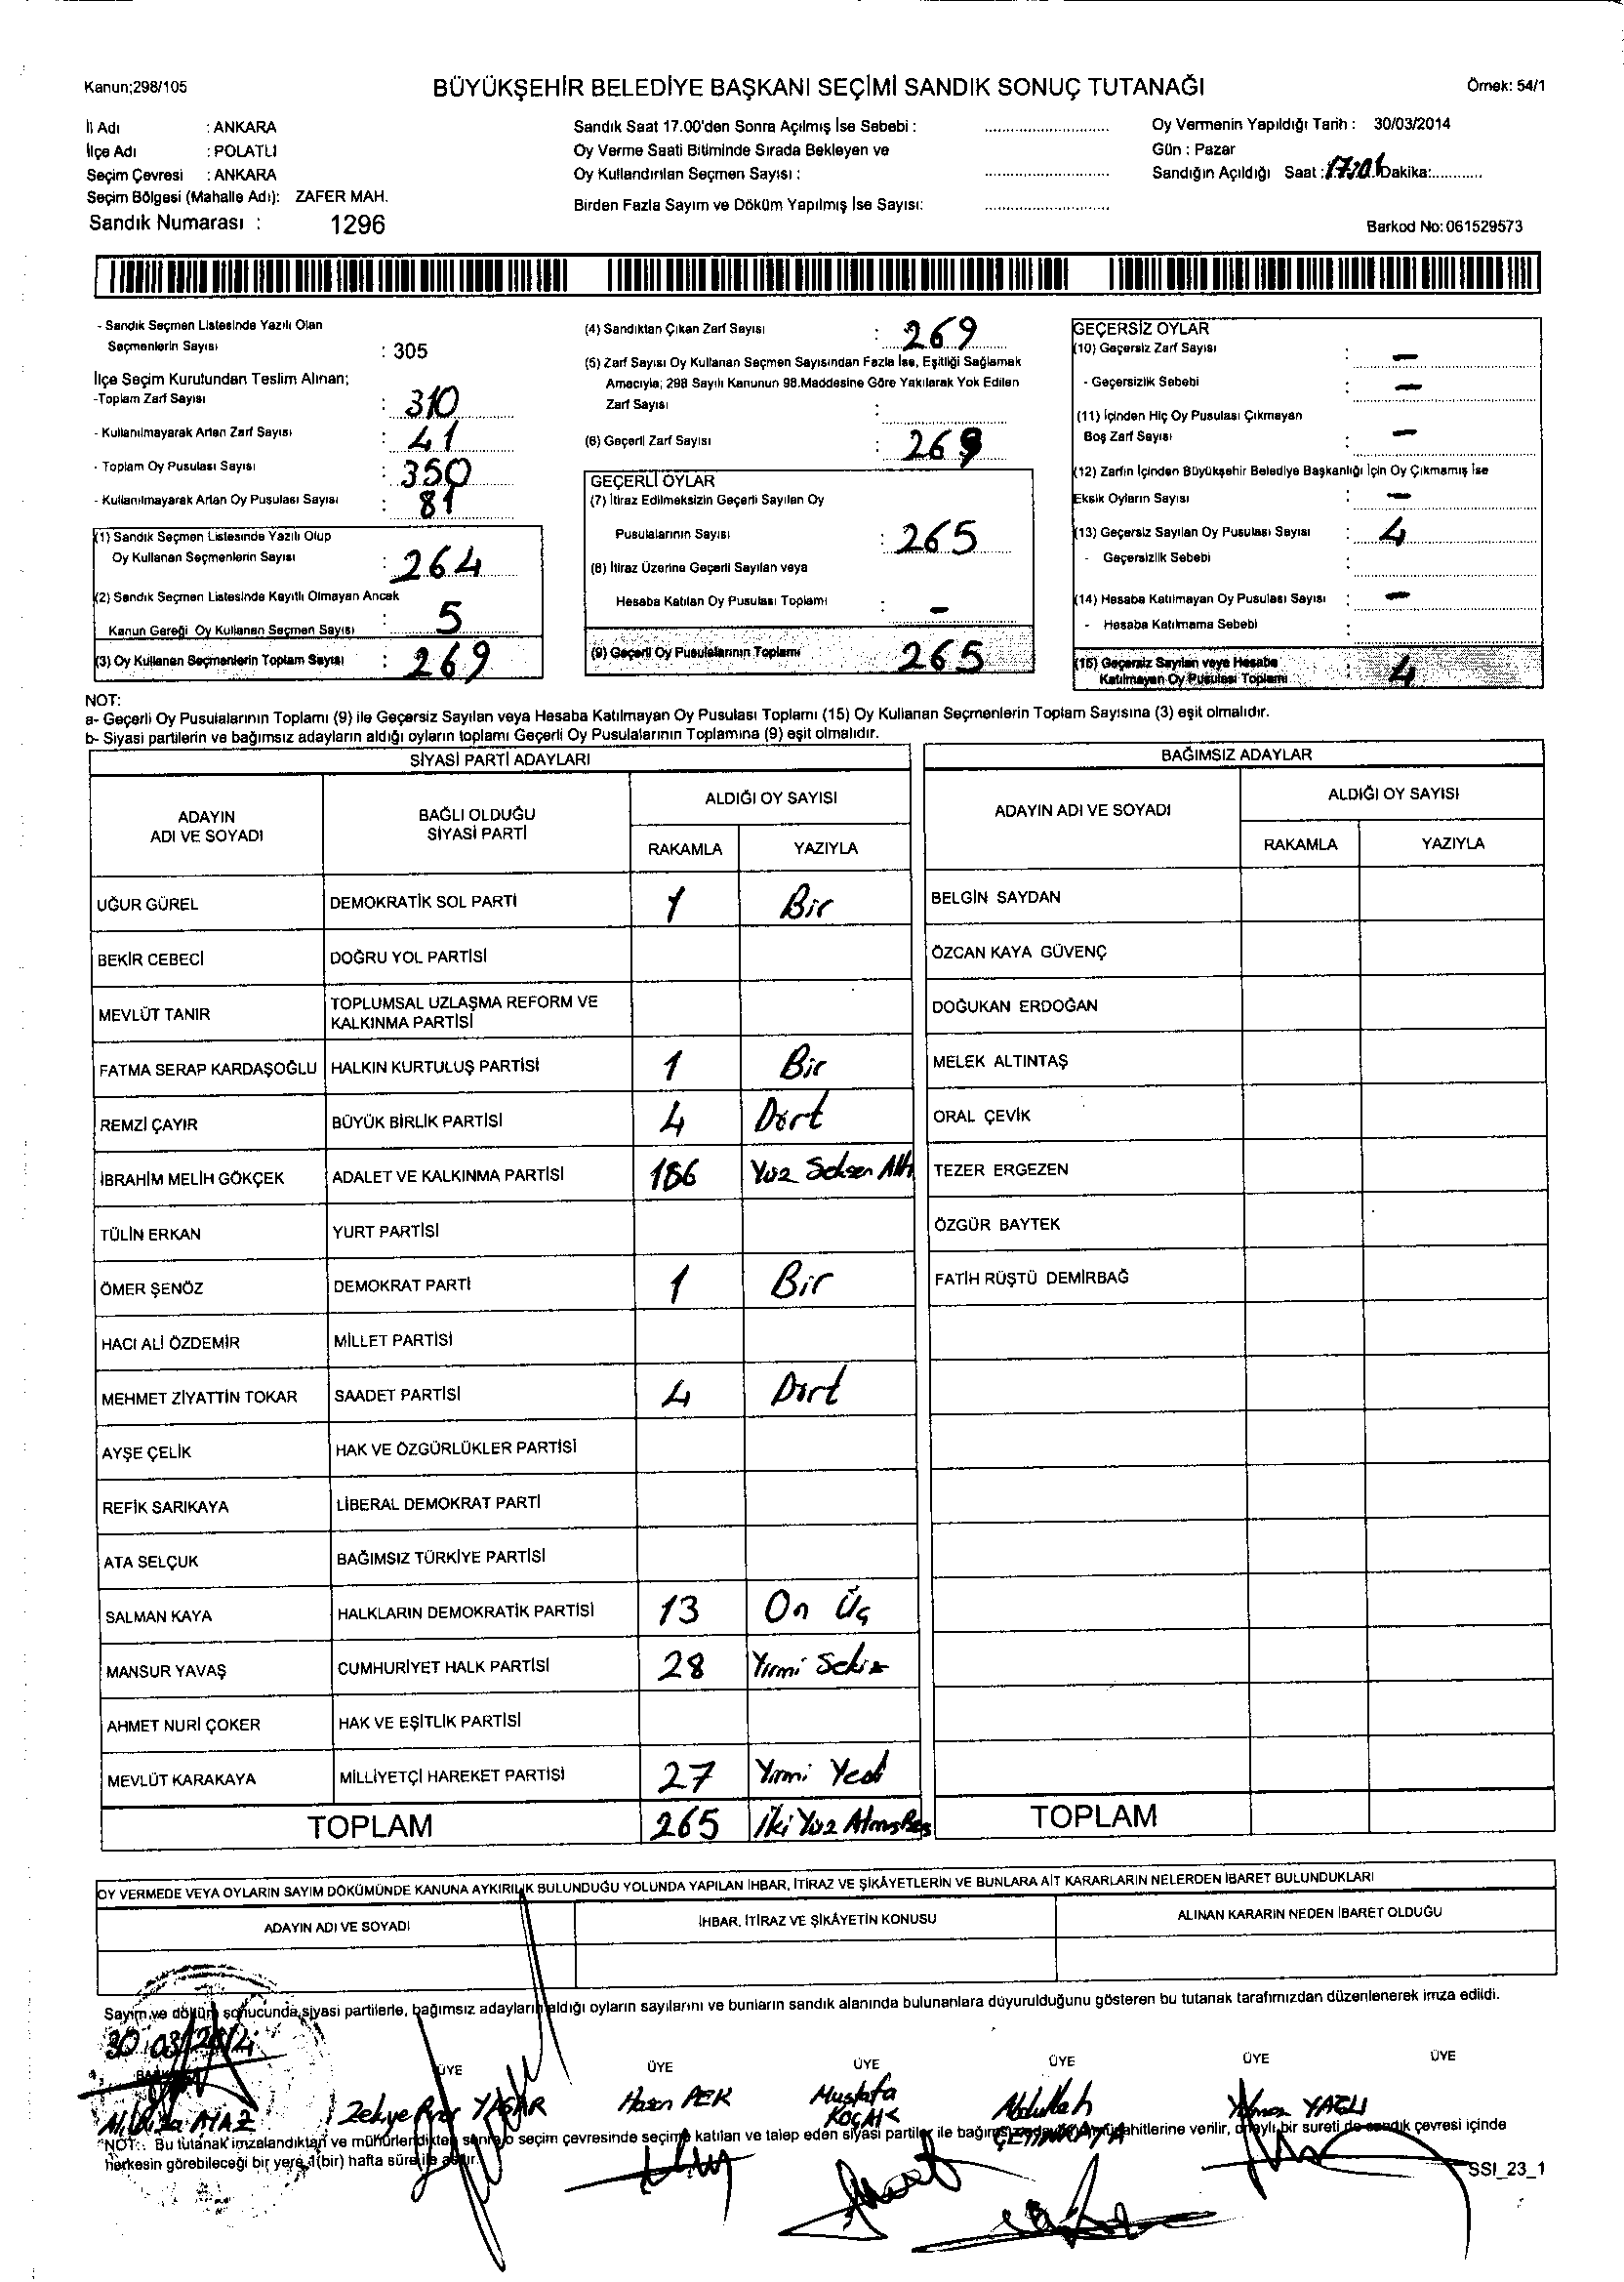 Kanun;298/105
BÜYÜKŞEHİR BELEDİYE BAŞKANI SEÇİMİ SANDIK SONUÇ TUTANAĞI
Örnek: 54/1
İl Adı : ANKARA
İlçe Adı : POLATLI
Seçim Çevresi : ANKARA
Seçim Bölgesi (Mahalle Adı): ZAFER MAH.
Sandık Numarası : 1296
Sandık Saat 17.00'den Sonra Açılmış İse Sebebi :
Oy Verme Saati Bitiminde Sırada Bekleyen ve
Oy Kullandırılan Seçmen Sayısı :
Birden Fazla Sayım ve Döküm Yapılmış İse Sayısı:
Oy Vermenin Yapıldığı Tarih : 30/03/2014
Gün : Pazar
Sandığın Açıldığı Saat : Dakika:
Barkod No: 061529573
- Sandık Seçmen Listesinde Yazılı Olan
Seçmenlerin Sayısı : 305
İlçe Seçim Kurulundan Teslim Alınan;
-Toplam Zarf Sayısı : 310
- Kullanılmayarak Artan Zarf Sayısı : 41
- Toplam Oy Pusulası Sayısı : 350
- Kullanılmayarak Artan Oy Pusulası Sayısı : 81
(1) Sandık Seçmen Listesinde Yazılı Olup
Oy Kullanan Seçmenlerin Sayısı : 264
(2) Sandık Seçmen Listesinde Kayıtlı Olmayan Ancak
Kanun Gereği Oy Kullanan Seçmen Sayısı : 5
(3) Oy Kullanan Seçmenlerin Toplam Sayısı : 269
(4) Sandıktan Çıkan Zarf Sayısı : 269
(5) Zarf Sayısı Oy Kullanan Seçmen Sayısından Fazla İse, Eşitliği Sağlamak
Amacıyla; 298 Sayılı Kanunun 98.Maddesine Göre Yakılarak Yok Edilen
Zarf Sayısı :
(6) Geçerli Zarf Sayısı : 269
GEÇERLİ OYLAR
(7) İtiraz Edilmeksizin Geçerli Sayılan Oy
Pusulalarının Sayısı : 265
(8) İtiraz Üzerine Geçerli Sayılan veya
Hesaba Katılan Oy Pusulası Toplamı : -
(9) Geçerli Oy Pusulalarının Toplamı 265
GEÇERSİZ OYLAR
(10) Geçersiz Zarf Sayısı : -
- Geçersizlik Sebebi : -
(11) İçinden Hiç Oy Pusulası Çıkmayan
Boş Zarf Sayısı : -
(12) Zarfın İçinden Büyükşehir Belediye Başkanlığı İçin Oy Çıkmamış İse
Eksik Oyların Sayısı : -
(13) Geçersiz Sayılan Oy Pusulası Sayısı : 4
- Geçersizlik Sebebi :
(14) Hesaba Katılmayan Oy Pusulası Sayısı : -
- Hesaba Katılmama Sebebi :
(15) Geçersiz Sayılan veya Hesaba
Katılmayan Oy Pusulası Toplamı : 4
NOT:
a- Geçerli Oy Pusulalarının Toplamı (9) ile Geçersiz Sayılan veya Hesaba Katılmayan Oy Pusulası Toplamı (15) Oy Kullanan Seçmenlerin Toplam Sayısına (3) eşit olmalıdır.
b- Siyasi partilerin ve bağımsız adayların aldığı oyların toplamı Geçerli Oy Pusulalarının Toplamına (9) eşit olmalıdır.
SİYASİ PARTİ ADAYLARI
ADAYIN ADI VE SOYADI
BAĞLI OLDUĞU SİYASİ PARTİ
ALDIĞI OY SAYISI
RAKAMLA YAZIYLA
UĞUR GÜREL DEMOKRATİK SOL PARTİ 1 Bir
BEKİR CEBECİ DOĞRU YOL PARTİSİ
MEVLÜT TANIR TOPLUMSAL UZLAŞMA REFORM VE KALKINMA PARTİSİ
FATMA SERAP KARDAŞOĞLU HALKIN KURTULUŞ PARTİSİ 1 Bir
REMZİ ÇAYIR BÜYÜK BİRLİK PARTİSİ 4 Dört
İBRAHİM MELİH GÖKÇEK ADALET VE KALKINMA PARTİSİ 186 Yüz Seksen Altı
TÜLİN ERKAN YURT PARTİSİ
ÖMER ŞENÖZ DEMOKRAT PARTİ 1 Bir
HACI ALİ ÖZDEMİR MİLLET PARTİSİ
MEHMET ZİYATTİN TOKAR SAADET PARTİSİ 4 Dört
AYŞE ÇELİK HAK VE ÖZGÜRLÜKLER PARTİSİ
REFİK SARIKAYA LİBERAL DEMOKRAT PARTİ
ATA SELÇUK BAĞIMSIZ TÜRKİYE PARTİSİ
SALMAN KAYA HALKLARIN DEMOKRATİK PARTİSİ 13 On Üç
MANSUR YAVAŞ CUMHURİYET HALK PARTİSİ 28 Yirmi Sekiz
AHMET NURİ ÇOKER HAK VE EŞİTLİK PARTİSİ
MEVLÜT KARAKAYA MİLLİYETÇİ HAREKET PARTİSİ 27 Yirmi Yedi
TOPLAM 265 İki Yüz Atmış Beş
BAĞIMSIZ ADAYLAR
ADAYIN ADI VE SOYADI
ALDIĞI OY SAYISI
RAKAMLA YAZIYLA
BELGİN SAYDAN
ÖZCAN KAYA GÜVENÇ
DOĞUKAN ERDOĞAN
MELEK ALTINTAŞ
ORAL ÇEVİK
TEZER ERGEZEN
ÖZGÜR BAYTEK
FATİH RÜŞTÜ DEMİRBAĞ
TOPLAM
OY VERMEDE VEYA OYLARIN SAYIM DÖKÜMÜNDE KANUNA AYKIRILIK BULUNDUĞU YOLUNDA YAPILAN İHBAR, İTİRAZ VE ŞİKÂYETLERİN VE BUNLARA AİT KARARLARIN NELERDEN İBARET BULUNDUKLARI
ADAYIN ADI VE SOYADI
İHBAR, İTİRAZ VE ŞİKÂYETİN KONUSU
ALINAN KARARIN NEDEN İBARET OLDUĞU
Sayım ve döküm sonucunda siyasi partilerle, bağımsız adayların aldığı oyların sayılarını ve bunların sandık alanında bulunanlara duyurulduğunu gösteren bu tutanak tarafımızdan düzenlenerek imza edildi.
30 03/2014
ÜYE ÜYE ÜYE ÜYE ÜYE ÜYE
YAŞAR
Hasan PEK
Mustafa KOÇAK
Abdullah ÇETİNKAYA
YAZLI
NOT: Bu tutanak imzalandıktan ve mühürlendikten sonra o seçim çevresinde seçime katılan ve talep eden siyasi partiler ile bağımsız müşahitlerine verilir, onaylı bir sureti de sandık çevresi içinde
herkesin görebileceği bir yere 1(bir) hafta süre ile asılır.
SSI_23_1